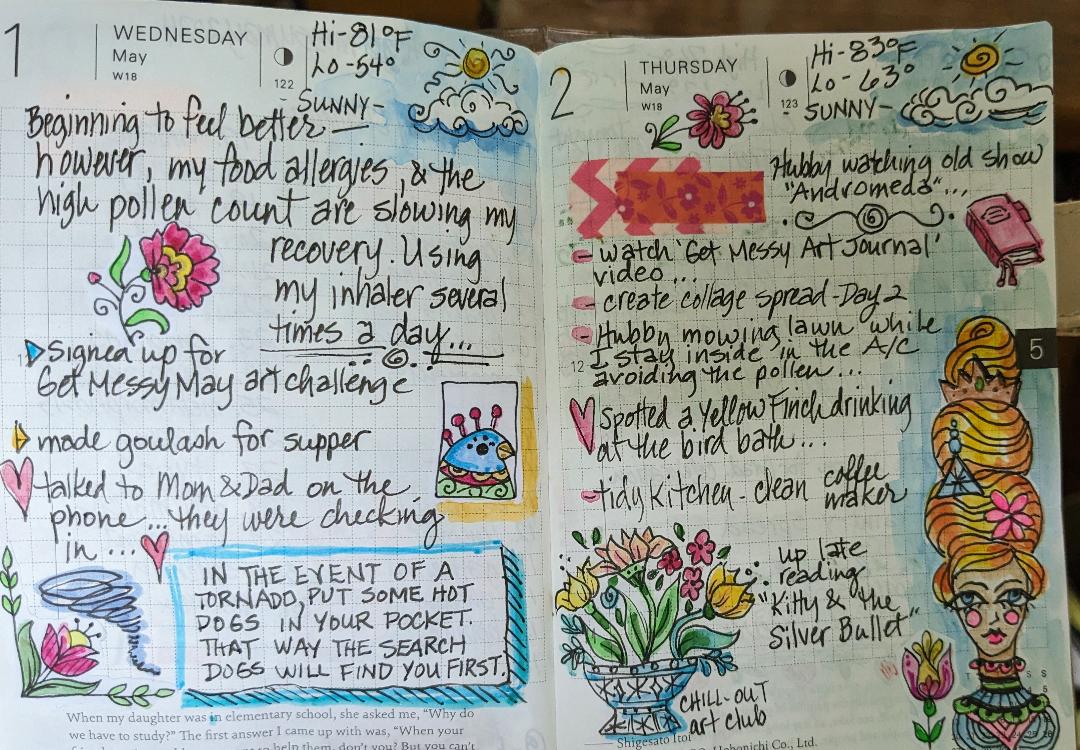 1
WEDNESDAY
May
W18
122
Hi-81°F
Lo-54°
SUNNY-
Beginning to feel better —
however, my food allergies, & the
high pollen count are slowing my
recovery. Using
my inhaler several
times a day...
signed up for
Get Messy May art challenge
made goulash for supper
talked to Mom & Dad on the
phone... they were checking
in...
IN THE EVENT OF A
TORNADO, PUT SOME HOT
DOGS IN YOUR POCKET.
THAT WAY THE SEARCH
DOGS WILL FIND YOU FIRST.
When my daughter was in elementary school, she asked me, "Why do
we have to study?" The first answer I came up with was, "When your
help them, don't you? But you can't
2
THURSDAY
May
W18
123
Hi-83°F
Lo-63°
SUNNY-
Hubby watching old show
"Andromeda"...
- watch 'Get Messy Art Journal'
video...
- create collage spread-Day 2
- Hubby mowing lawn while
I stay inside in the A/C
12
avoiding the pollen...
5
Spotted a Yellow Finch drinking
at the bird bath...
- tidy kitchen - clean coffee
maker
up late
reading
"Kitty & the
Silver Bullet"
CHILL-OUT
art club
— Shigesato Itoi
Hobonichi Co., Ltd.